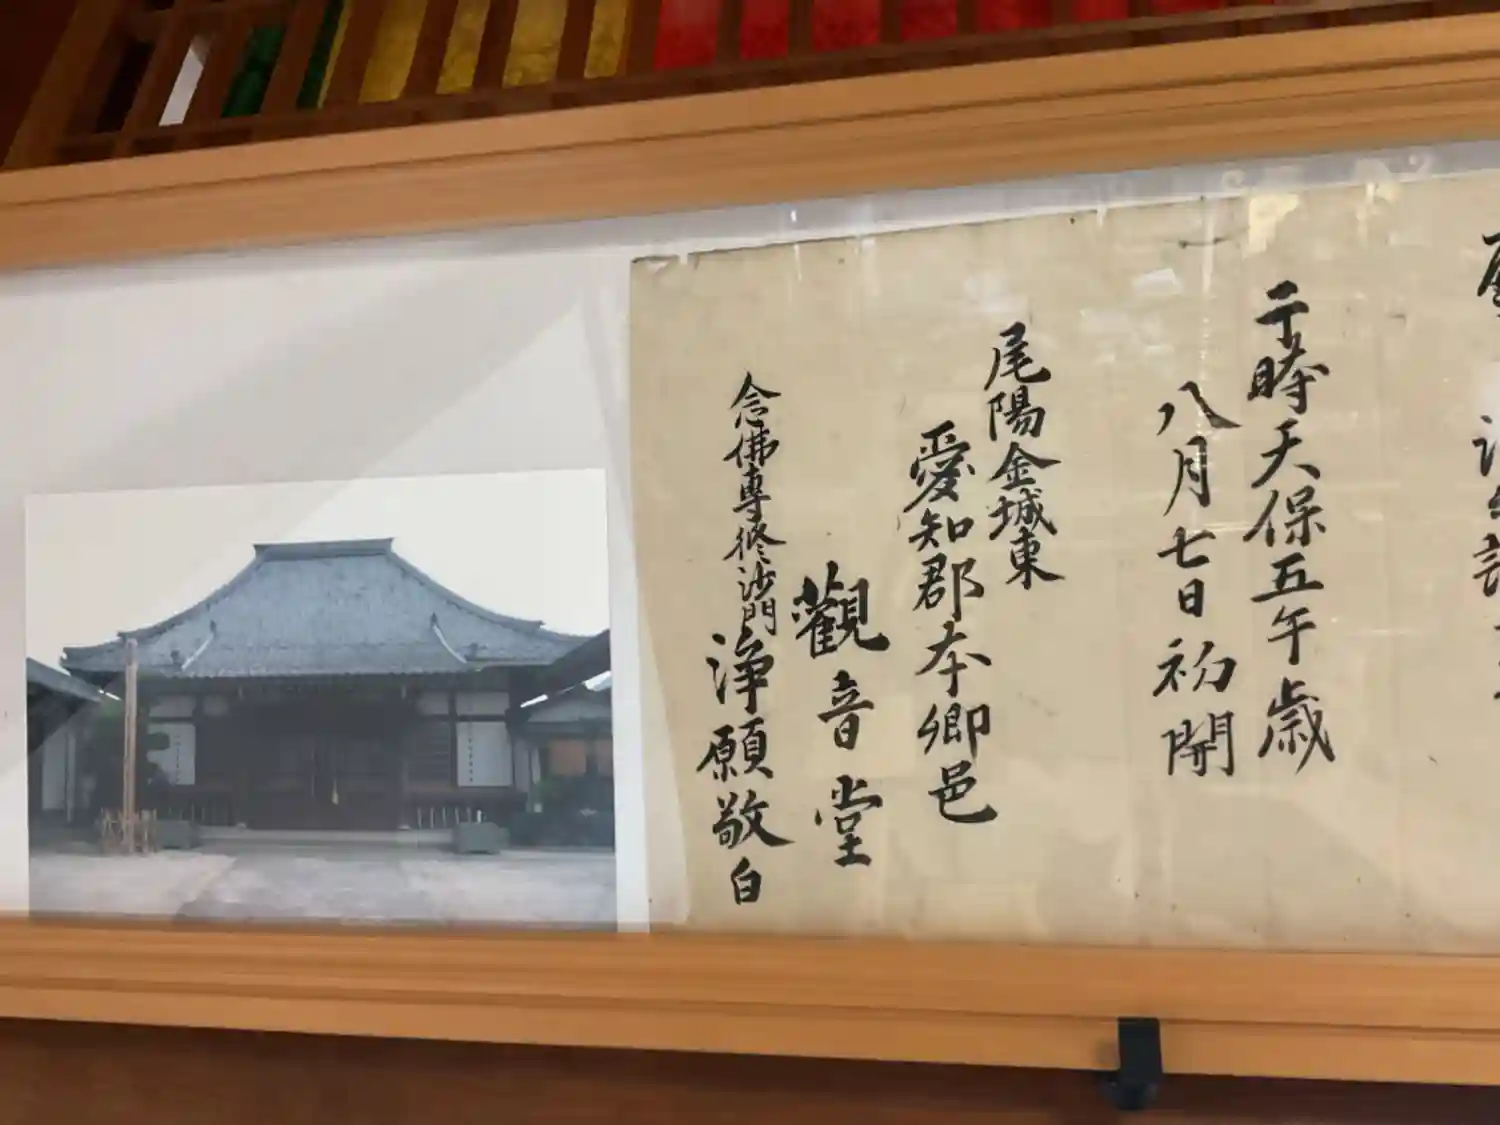 于時天保五午歳
八月七日初開
尾陽金城東
愛知郡本郷邑
觀音堂
念佛專修沙門浄願敬白